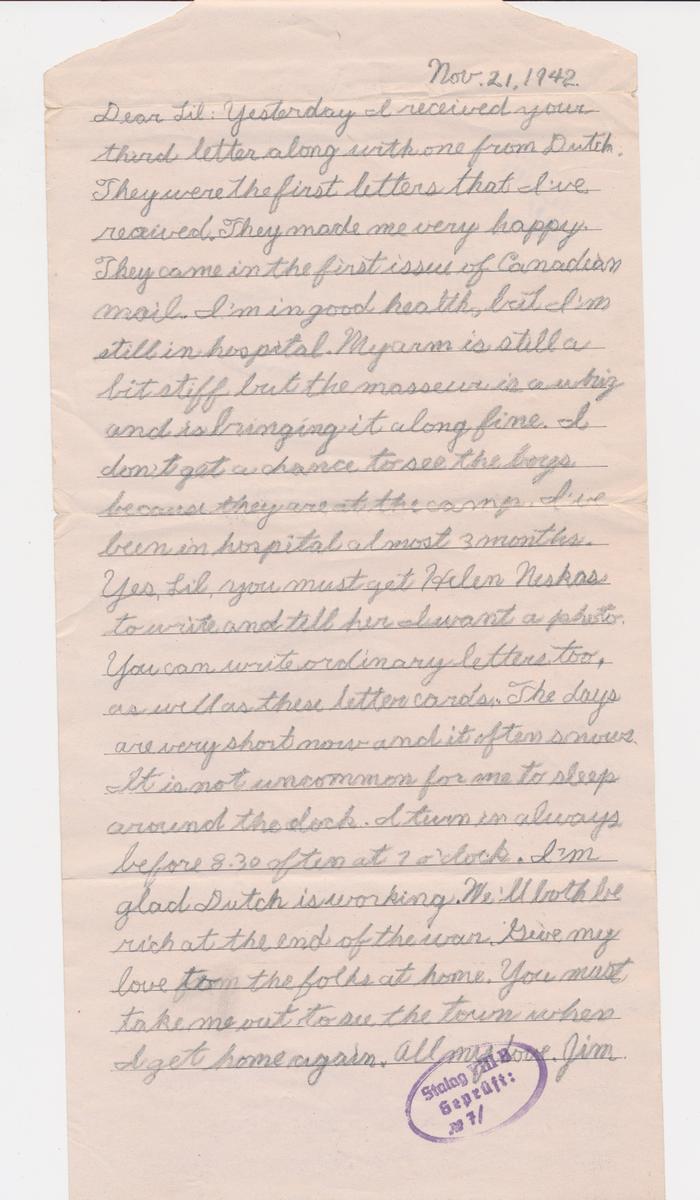 Nov. 21, 1942.
Dear Lil: Yesterday I received your
third letter along with one from Dutch.
They were the first letters that I've
received. They made me very happy.
They came in the first issue of Canadian
mail. I'm in good health, but I'm
still in hospital. My arm is still a
bit stiff but the masseur is a whiz
and is bringing it along fine. I
don't get a chance to see the boys
because they are at the camp. I've
been in hospital almost 3 months.
Yes, Lil, you must get Helen Neskas
to write and tell her I want a photo.
You can write ordinary letters too,
as well as these letter cards. The days
are very short now and it often snows.
It is not uncommon for me to sleep
around the clock. I turn in always
before 8.30 often at 7 o'clock. I'm
glad Dutch is working. We'll both be
rich at the end of the war. Give my
love to the folks at home. You must
take me out to see the town when
I get home again. All my love. Jim
Stalag VIII-B
Geprüft:
№ 7/